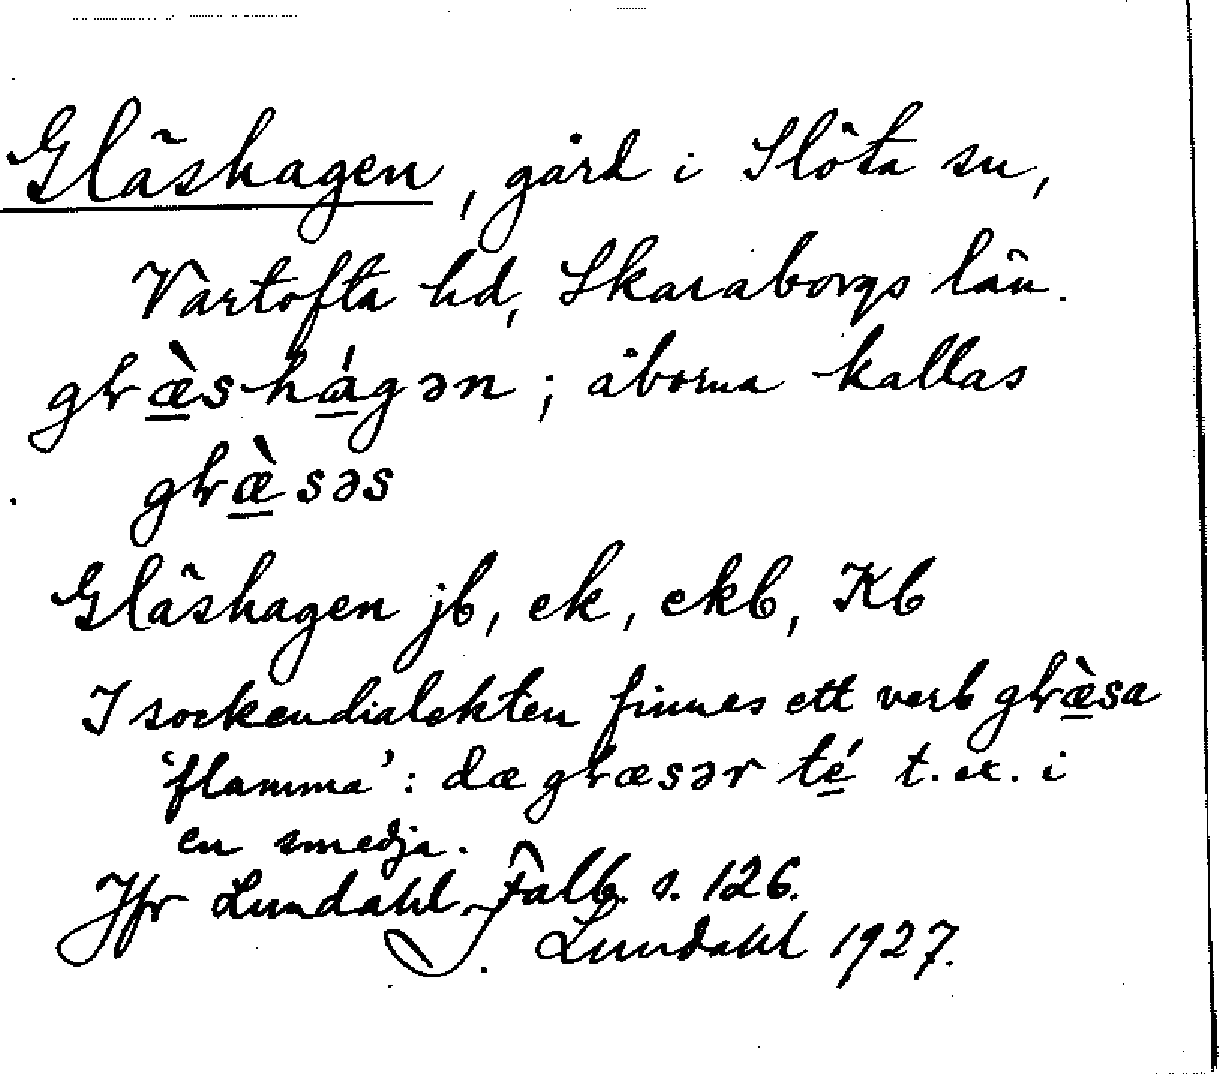 Gläshagen, gård i Slöta sn,
Vartofta hd, Skaraborgs län.
glræ̀shágən; åborna kallas
glræ̀səs
Gläshagen jb, ek, ekb, Kb
I sockendialekten finnes ett verb glræ̀sa
'flamma': dæ glræsər té t. ex. i
en smedja.
Jfr Lundahl Falb. s. 126.
I. Lundahl 1927.